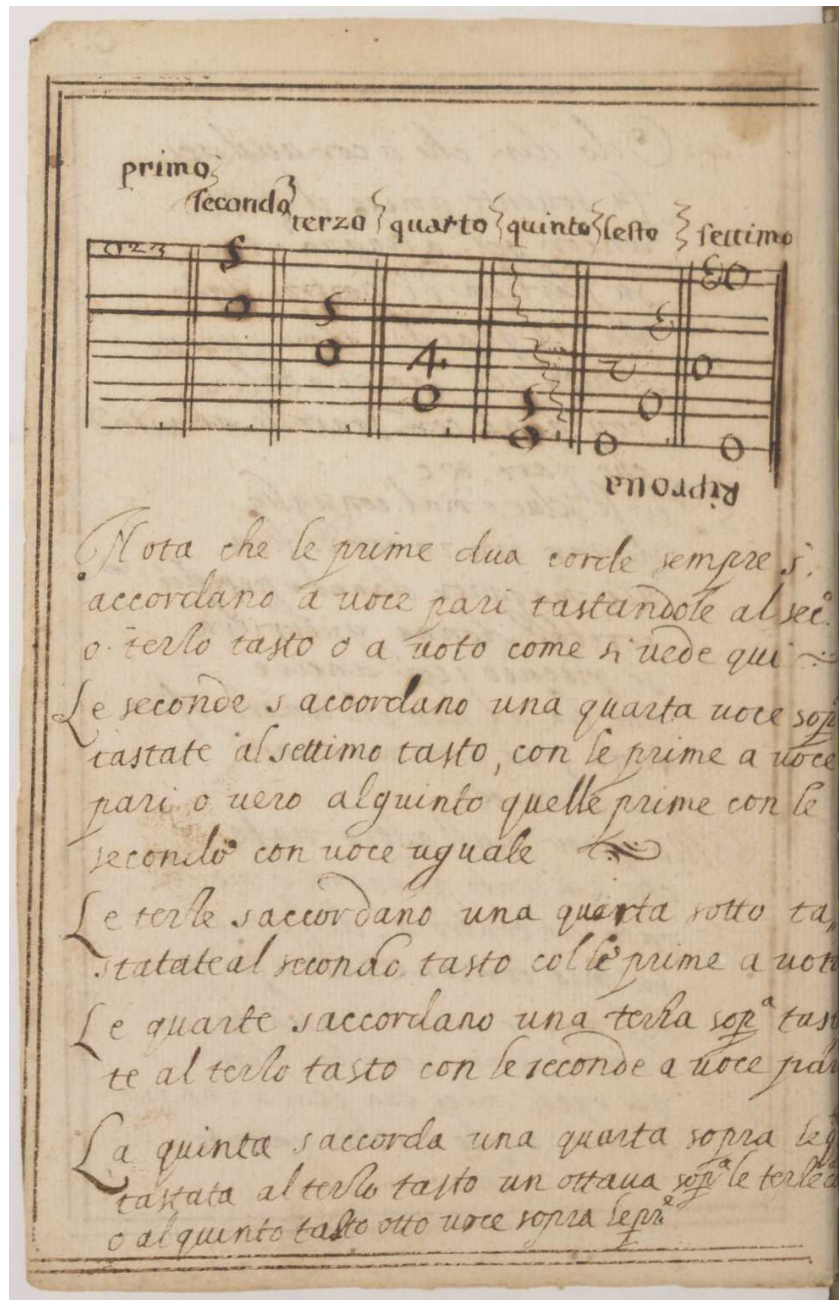 primo
secondo
terzo
quarto
quinto
sesto
settimo
023
5
0
5
0
4
0
5
0
0
0
0
0
0
Riproua
Nota che le prime dua corde sempre s'
accordano a uoce pari tastandole al sec.º
o terzo tasto o a uoto come si uede qui
Le seconde s accordano una quarta uoce sopª
tastate al settimo tasto, con le prime a uoce
pari o uero alquinto quelle prime con le
seconde con uoce uguale
Le terze s accordano una quarta sotto ta,
statate al secondo tasto colle prime a uoto
Le quarte s accordano una terza soprª tast
te al terzo tasto con le seconde a uoce pari
La quinta s accorda una quarta sopra le
tastata al terzo tasto un ottaua soprª le terze
o al quinto tasto otto uoce sopra le prª